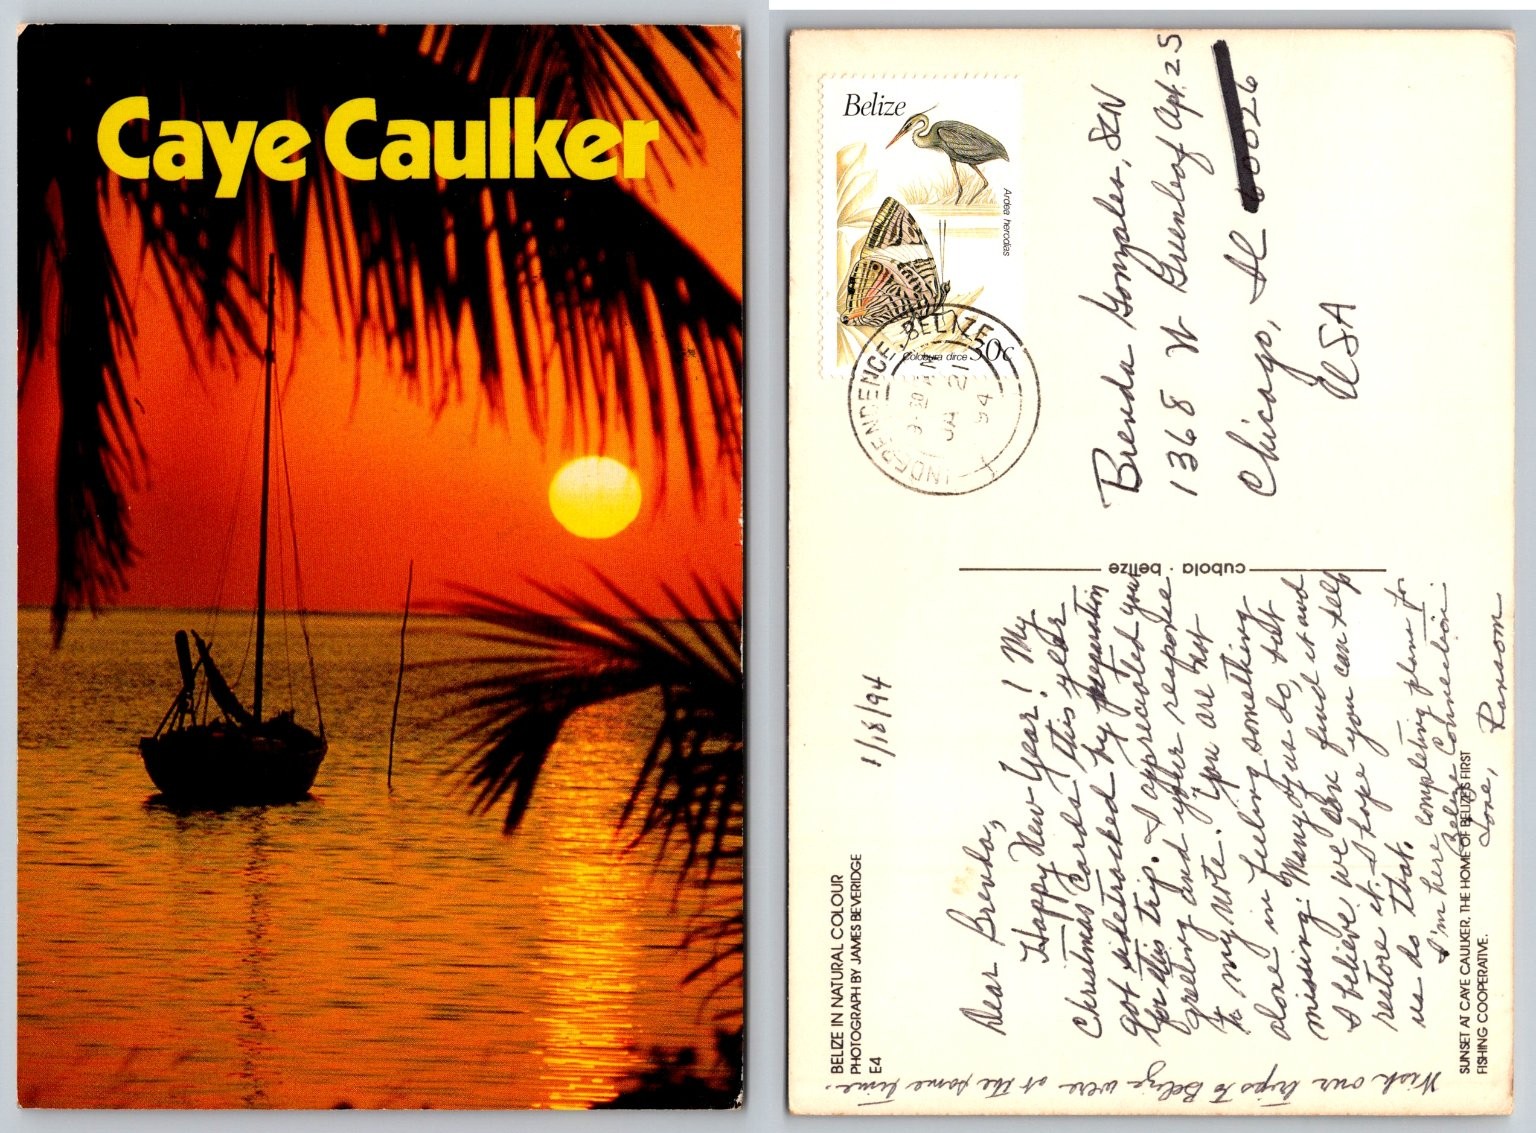 Caye Caulker
Belize
Ardea herodias
Colobura dirce 30c
INDEPENDENCE BELIZE
9-30 AM
JA 21
94
Brenda Gonzales, SCN
1368 W Greenleaf Apt. 2S
Chicago, IL 60026
USA
cubola · belize
BELIZE IN NATURAL COLOUR
PHOTOGRAPH BY JAMES BEVERIDGE
E4
1/18/94
Dear Brenda,
Happy New Year! My
Christmas Cards this year
got sidetracked by preparation
for this trip. I appreciated your
greeting and your response
to my note. You are not
alone in feeling something
missing. Many of us do, but
I believe we can find it and
restore it. I hope you can help
us do that.
I'm here completing plans for
Belize Connection.
Love, Ransom
Wish our trips to Belize were at the same time.
SUNSET AT CAYE CAULKER, THE HOME OF BELIZE'S FIRST
FISHING COOPERATIVE.